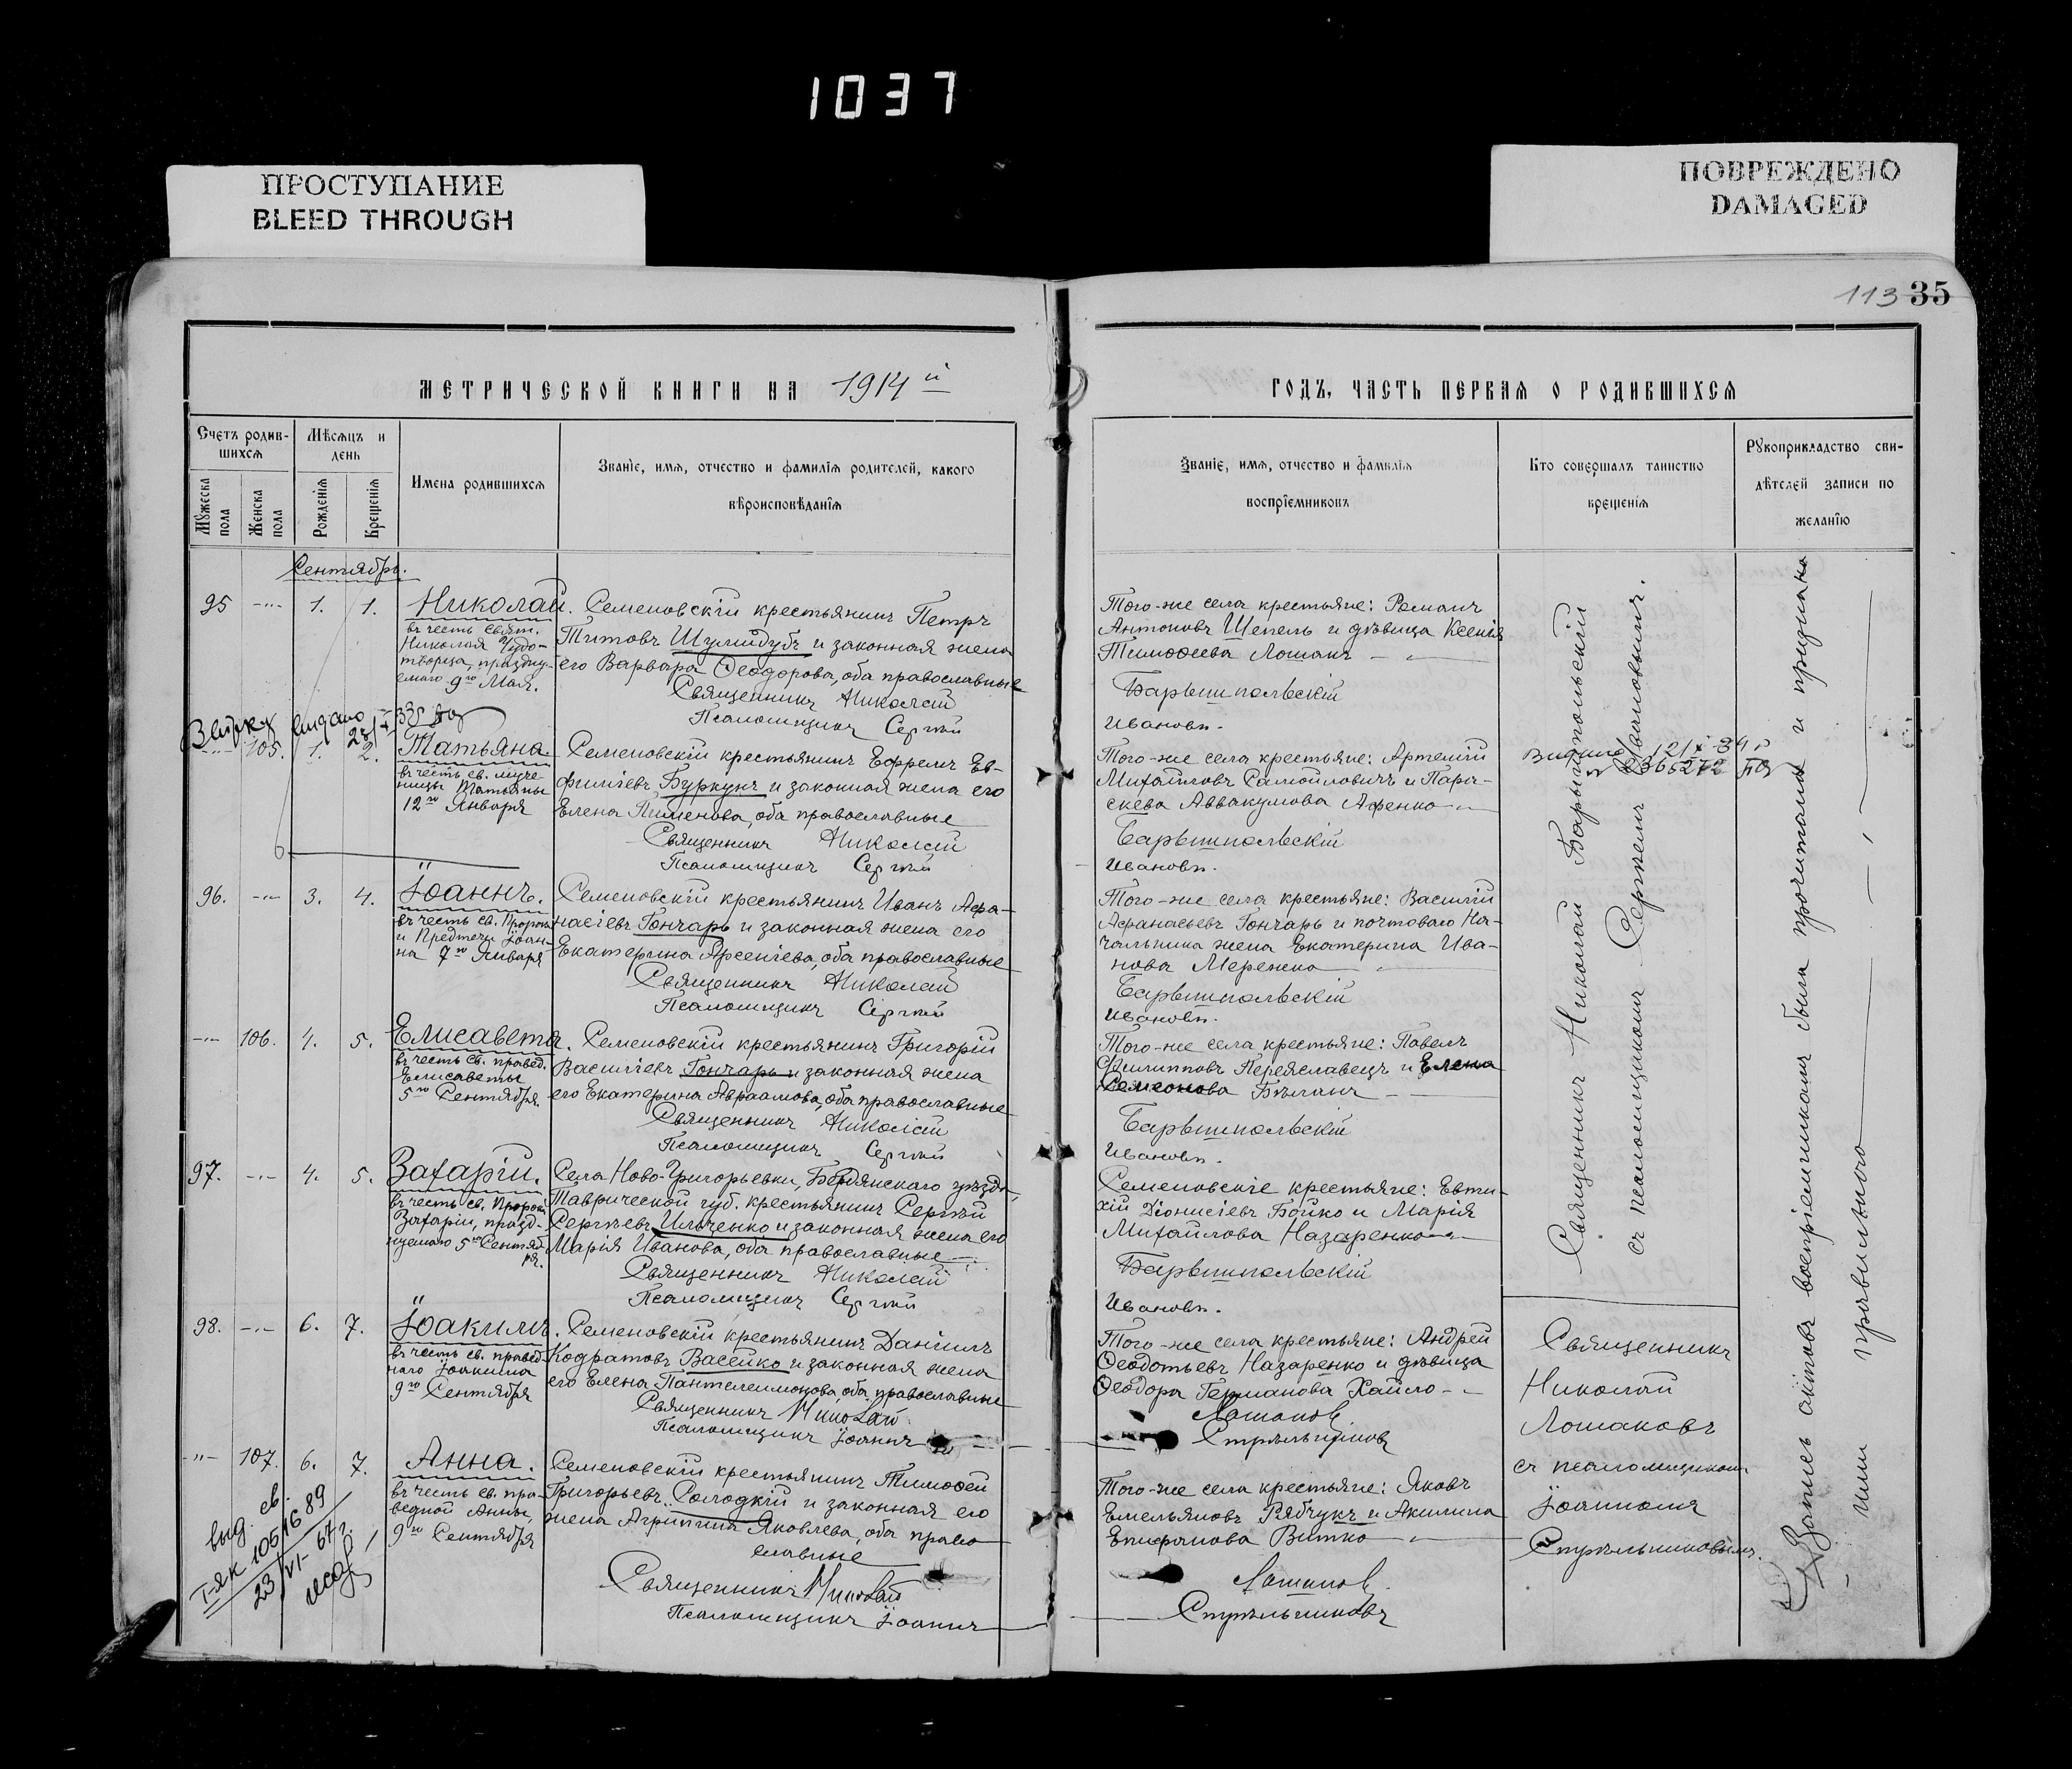 1037
ПРОСТУПАНИЕ
BLEED THROUGH
ПОВРЕЖДЕНО
DAMAGED
113 35
МЕТРИЧЕСКОЙ КНИГИ НА 1914й
ГОДЪ, ЧАСТЬ ПЕРВАЯ О РОДИВШИХСЯ
Счетъ родив-
шихся
Мѣсяцъ и
день
Мужеска
пола
Женска
пола
Рожденія
Крещенія
Имена родившихся
Званіе, имя, отчество и фамилія родителей, какого
вѣроисповѣданія
Званіе, имя, отчество и фамилія
воспріемниковъ
Кто совершалъ таинство
крещенія
Рукоприкладство сви-
дѣтелей записи по
желанію
Сентябрь.
95 -"- 1. 1.
Николай.
въ честь Свят.
Николая Чудо-
творца, праздну-
емаго 9го Мая.
Семеновскій крестьянинъ Петръ
Титовъ Шумидубъ и законная жена
его Варвара Ѳеодорова, оба православные
Священникъ Николай
Псаломщикъ Сергій
Того-же села крестьяне: Романъ
Антоновъ Шепель и дѣвица Ксенія
Тимоѳеева Лошакъ
Барышпольскій
Ивановъ.
-"- 105. 1. 2.
Татьяна.
въ честь св. муче-
ницы Татьяны
12го Января
Семеновскій крестьянинъ Ефремъ Ев-
фиміевъ Буркунъ и законная жена его
Елена Пименова, оба православные
Священникъ Николай
Псаломщикъ Сергій
Того-же села крестьяне: Артемій
Михайловъ Самойловичъ и Пара-
скева Аввакумова Афенко
Барышпольскій
Ивановъ.
96. -"- 3. 4.
Іоаннъ.
въ честь св. Пророка
и Предтечи Іоан-
на 7го Января
Семеновскій крестьянинъ Иванъ Афа-
насіевъ Гончаръ и законная жена его
Екатерина Арсеніева, оба православные
Священникъ Николай
Псаломщикъ Сергій
Того-же села крестьяне: Василій
Афанасьевъ Гончаръ и почтоваго На-
чальника жена Екатерина Ива-
нова Мережко
Барышпольскій
Ивановъ.
-"- 106. 4. 5.
Елисавета.
въ честь св. правед.
Елисаветы
5го Сентября.
Семеновскій крестьянинъ Григорій
Василіевъ Гончаръ и законная жена
его Екатерина Авраамова, оба православные
Священникъ Николай
Псаломщикъ Сергій
Того-же села крестьяне: Павелъ
Филипповъ Переяславецъ и Елена
Семеонова Бѣланъ
Барышпольскій
Ивановъ.
97. -"- 4. 5.
Захарій.
въ честь св. Пророка
Захаріи, празд-
нуемаго 5го Сентяб-
ря.
Села Ново-Григорьевки, Бердянскаго уѣзда,
Таврической губ. крестьянинъ Сергѣй
Сергѣевъ Ильченко и законная жена его
Марія Иванова, оба православные
Священникъ Николай
Псаломщикъ Сергій
Семеновскіе крестьяне: Евти-
хій Діонисіевъ Бойко и Марія
Михайлова Назаренко
Барышпольскій
Ивановъ.
98. -"- 6. 7.
Іоакимъ.
въ честь св. правед-
наго Іоакима
9го Сентября
Семеновскій крестьянинъ Даніилъ
Кодратовъ Васейко и законная жена
его Елена Пантелеимонова, оба православные
Священникъ Николай
Псаломщикъ Іоаннъ
Того-же села крестьяне: Андрей
Ѳеодотьевъ Назаренко и дѣвица
Ѳеодора Германова Хайло
Лошаковъ
Стрѣльниковъ
-"- 107. 6. 7.
Анна.
въ честь св. пра-
ведной Анны,
9го Сентября
Семеновскій крестьянинъ Тимоѳей
Григорьевъ Солодкій и законная его
жена Агрипина Яковлева, оба право
славные
Священникъ Николай
Псаломщикъ Іоаннъ
Того-же села крестьяне: Яковъ
Емельяновъ Рябчукъ и Акилина
Епифанова Витко
Лошаковъ.
Стрѣльниковъ
выд. св.
I-ЯК 1051689
23/VI-67г.
Священникъ Николай Барышпольскій
съ псаломщикомъ Сергіемъ Ивановымъ.
Священникъ
Николай
Лошаковъ
съ псаломщикомъ
Іоанномъ
Стрѣльниковымъ.
Запись актовъ воспріемниками была прочитана и признана
ими правильною